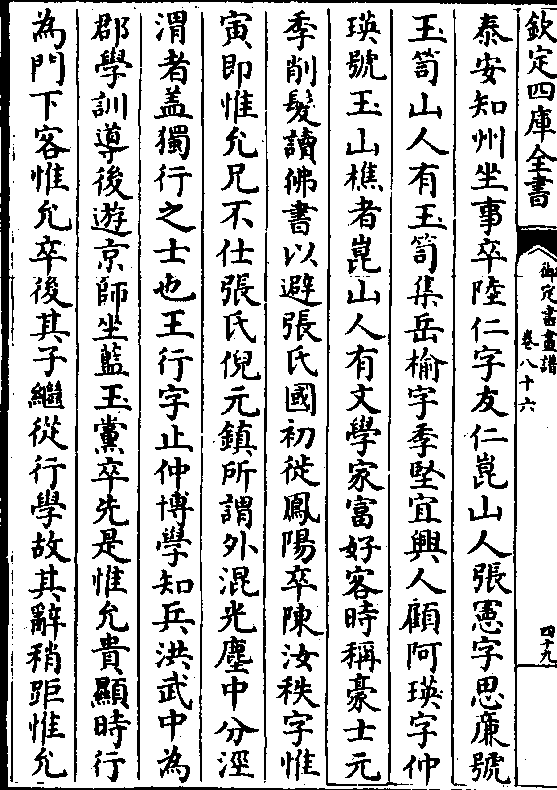 欽定四庫全書
御定書畫譜
卷八十六
四十九
泰安知州坐事卒陸仁字友仁崑山人張憲字思廉號
玉笥山人有玉笥集岳榆字季堅宜興人顧阿瑛字仲
瑛號玉山樵者崑山人有文學家富好客時稱豪士元
季削髮讀佛書以避張氏國初徙鳳陽卒陳汝秩字惟
寅即惟允兄不仕張氏倪元鎮所謂外混光塵中分涇
渭者盖獨行之士也王行字止仲博學知兵洪武中為
郡學訓導後遊京師坐藍玉黨卒先是惟允貴顯時行
為門下客惟允卒後其子繼從行學故其辭稍距惟允